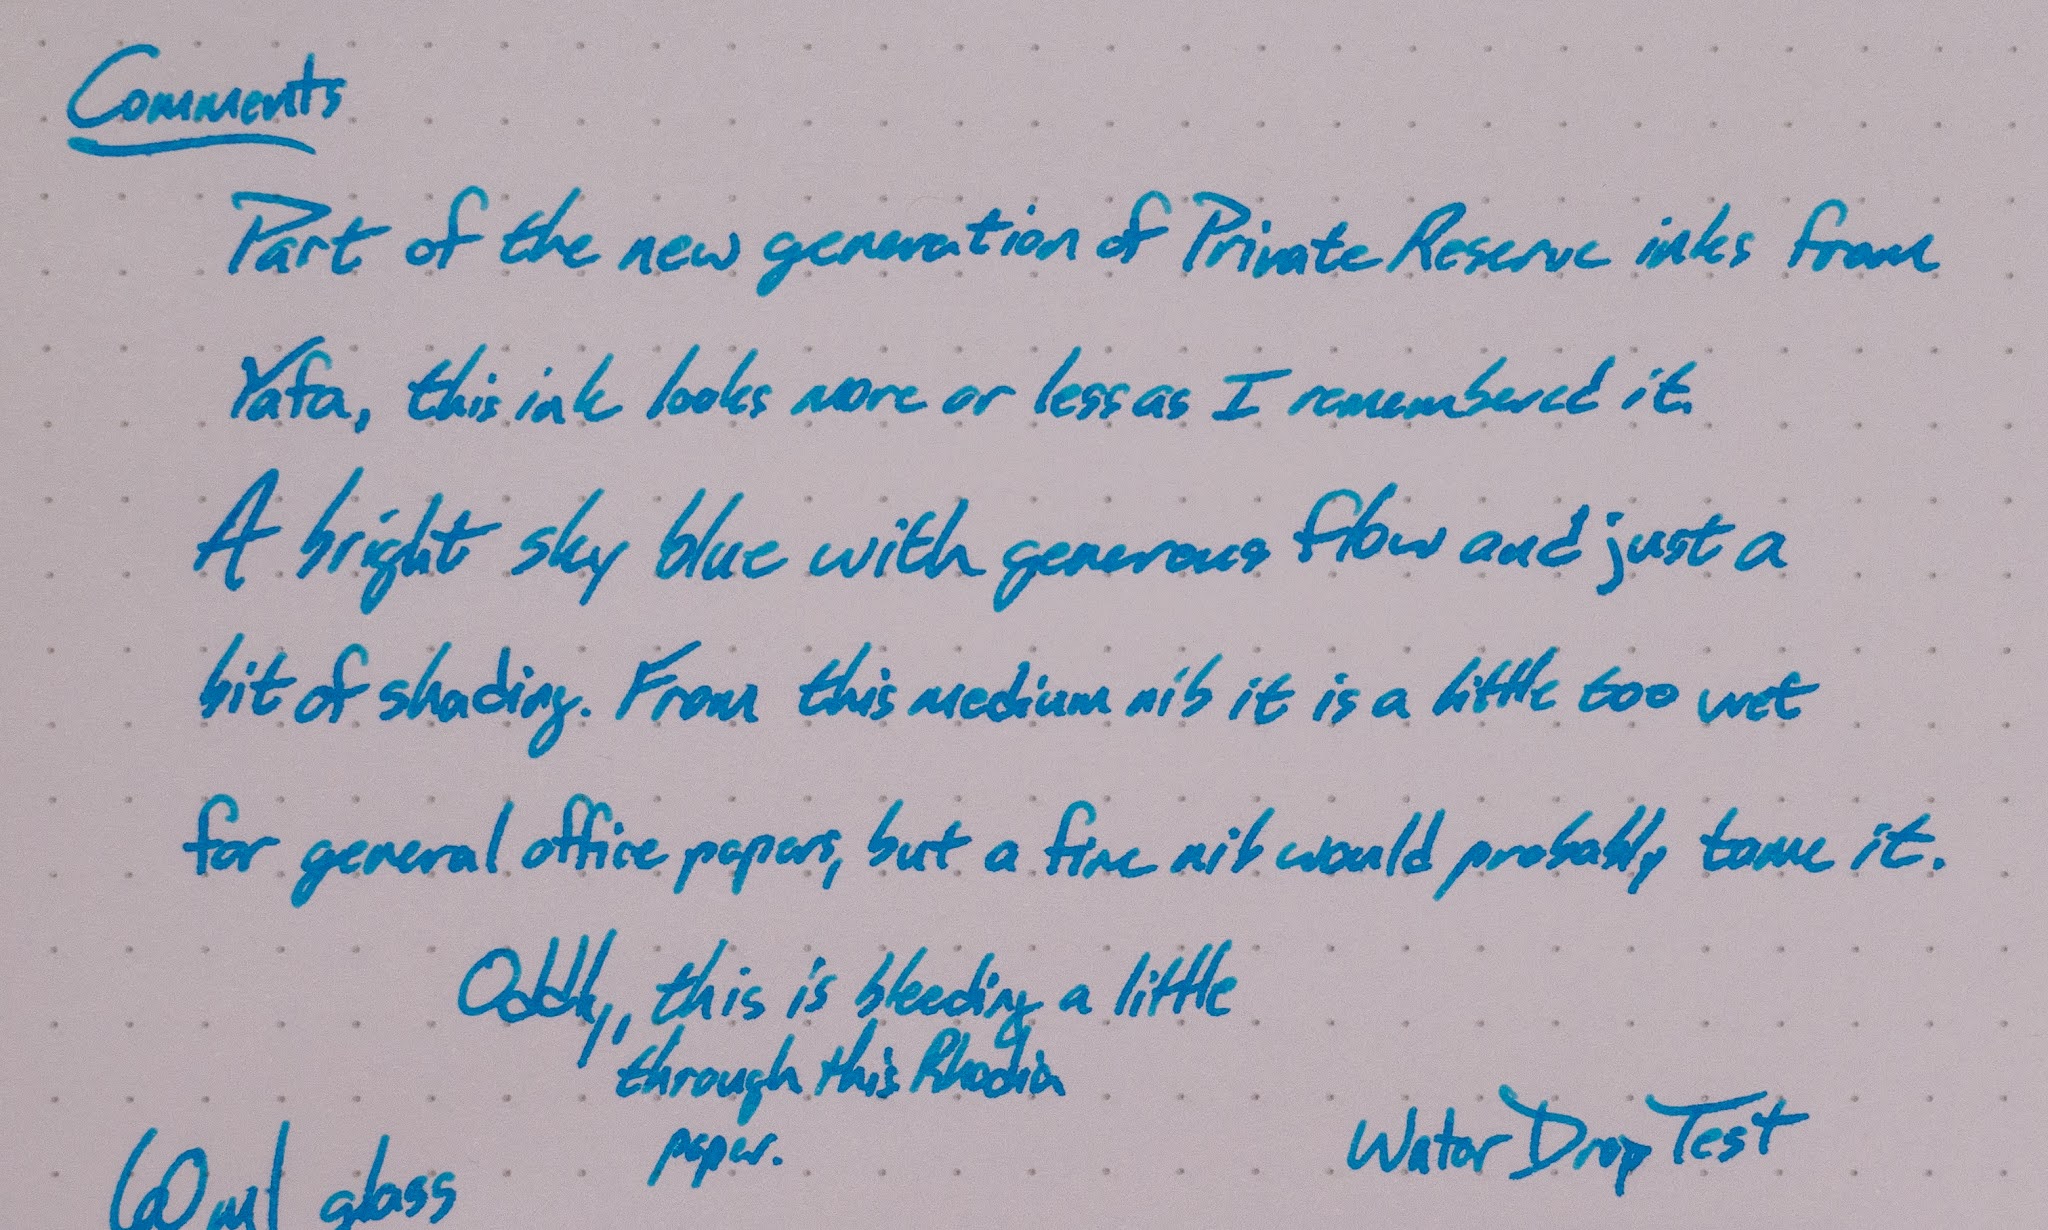 Comments
Part of the new generation of Private Reserve inks from
Yafa, this ink looks more or less as I remembered it.
A bright sky blue with generous flow and just a
bit of shading. From this medium nib it is a little too wet
for general office papers, but a fine nib would probably tame it.
Oddly, this is bleeding a little
through this Rhodia
paper.
Water Drop Test
60ml glass